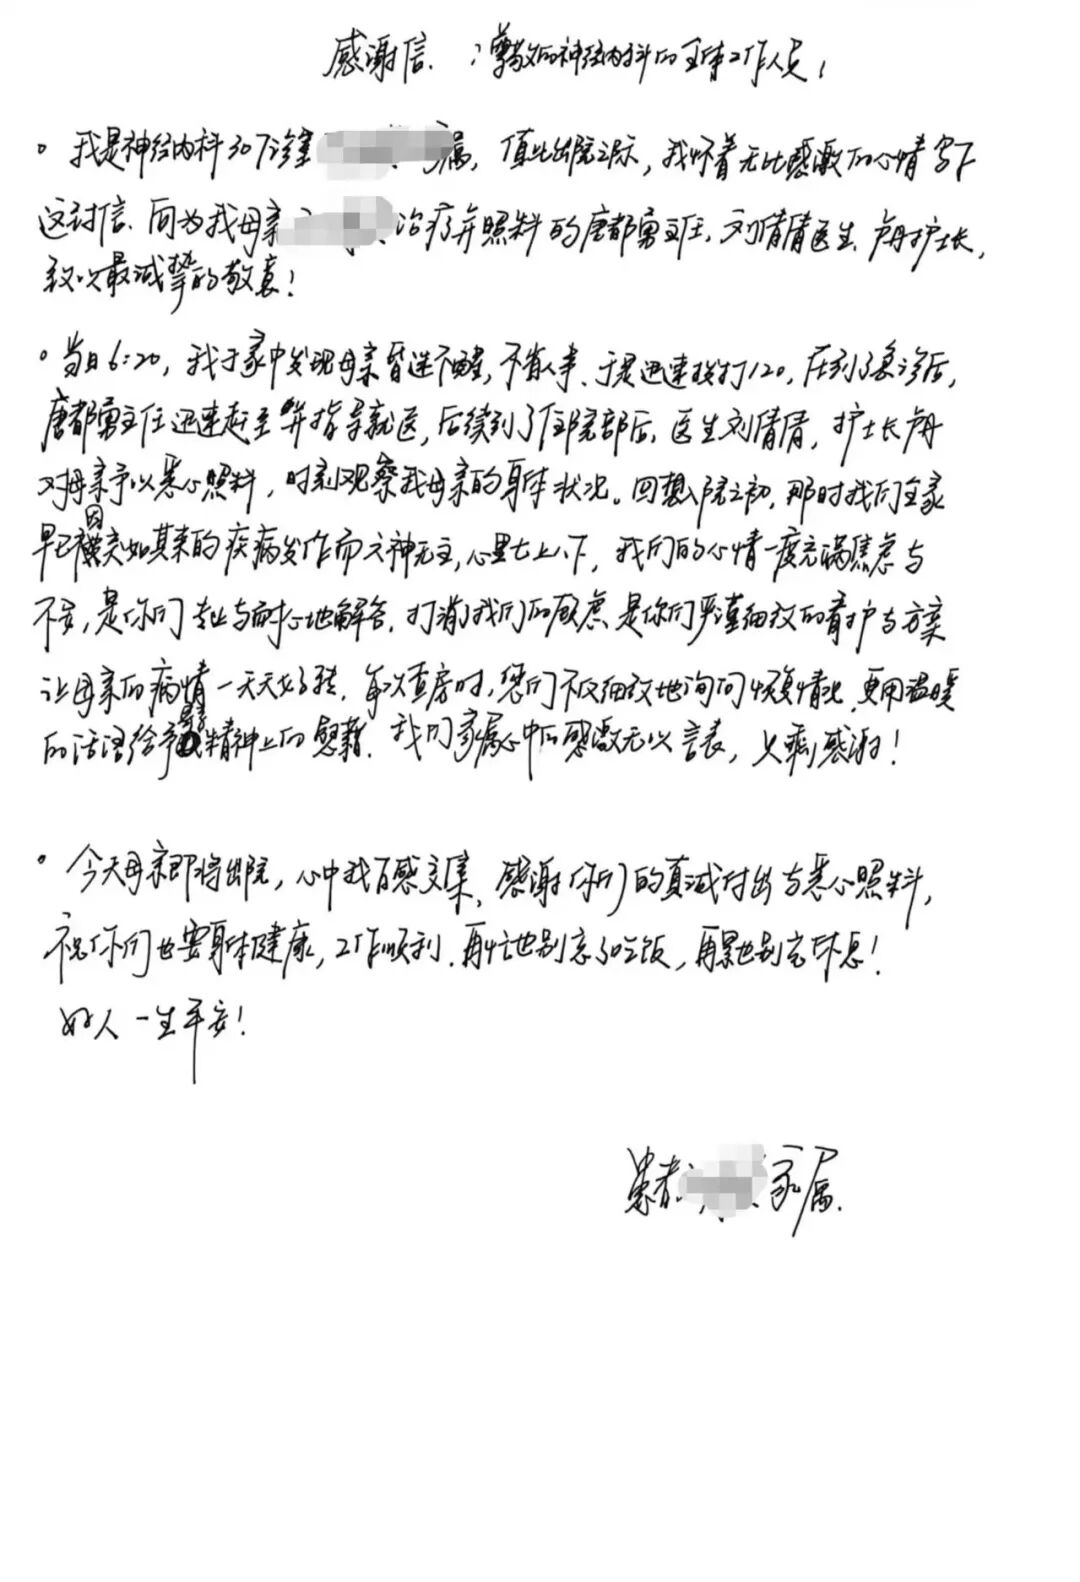 感谢信：尊敬的神经内科的全体工作人员！
。我是神经内科307诊室 属，值此出院之际，我怀着无比感激的心情写下
这封信.向为我母亲 治疗并照料的唐都勇主任、刘倩倩医生、卢丹护士长，
致以最诚挚的敬意！
。当日6:20，我于家中发现母亲昏迷不醒，不省人事、于是迅速拨打120，在到了急诊后，
唐都勇主任迅速赶至并指导就医，后续到了住院部后，医生刘倩倩，护士长卢丹
对母亲予以悉心照料，时刻观察我母亲的身体状况。回想入院之初，那时我们全家
早已因突如其来的疾病发作而六神无主，心里七上八下，我们的心情一度充满焦虑与
不安，是你们专业与耐心地解答，打消我们的顾虑，是你们严谨细致的看护与方案
让母亲的病情一天天好转，每次查房时，您们不仅细致地询问恢复情况，更用温暖
的话语给予精神上的慰藉，我们家属心中的感激无以言表，义 感谢！
。今天母亲即将出院，心中我百感交集，感谢你们的真诚付出与悉心照料，
祝你们也要身体健康，工作顺利，再忙也别忘了吃饭，再累也别忘休息！
好人一生平安！
患者 家属.